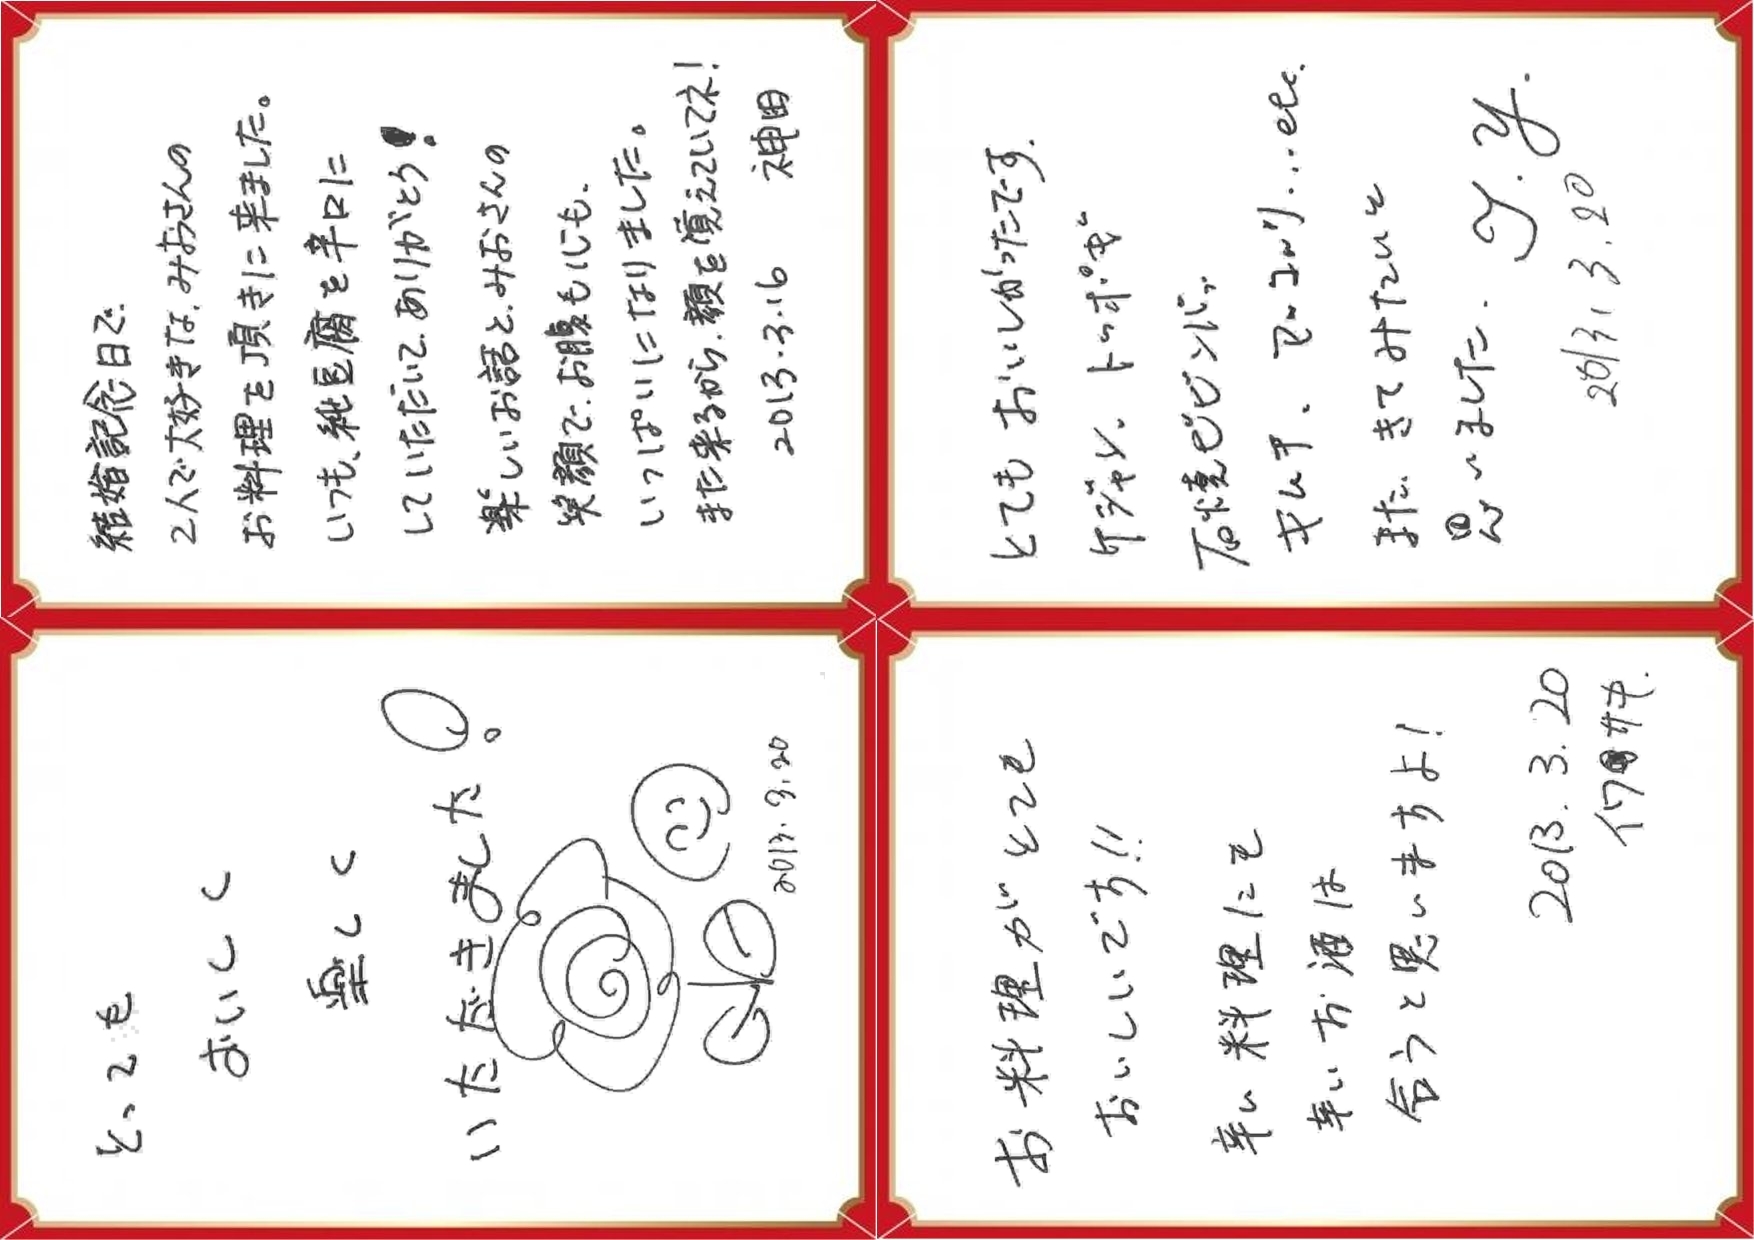 結婚記念日で、
2人で大好きな、みおさんの
お料理を頂きに来ました。
いつも、純豆腐を辛口に
していただいて、ありがとう!
楽しいお話と、みおさんの
笑顔で、お腹も心にも、
いっぱいになりました。
また来るから、顔を覚えていてネ!
2013.3.16 神田
とても おいしかったです.
ケジャン、トッポギ
石焼ビビンバッ
チヂミ、マッコリ...etc.
また、きてみたいと
思いました.
Y.Y.
2013.3.20
とっても
おいしく
楽しく
いただきました。
2013.3.20
お料理がとても
おいしいです!!
辛い料理にも
辛いお酒は
合うと思いますよ!
2013.3.20